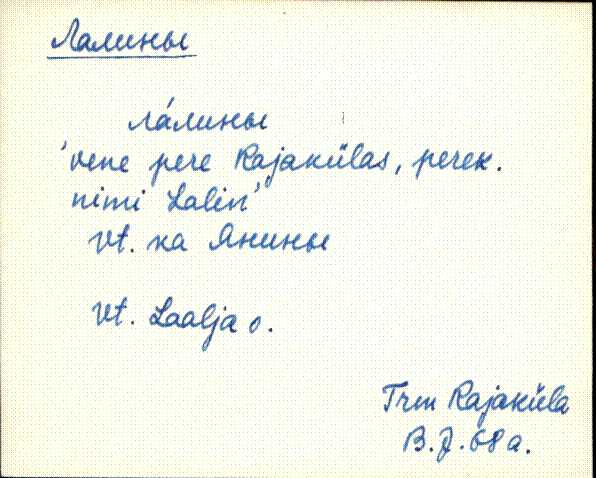 Лалины
ла́лины
'vene pere Rajakülas, perek.
nimi Lalin'
vt. ka Янины
vt. Laalja o.
Trm Rajaküla
B.J. 68 a.